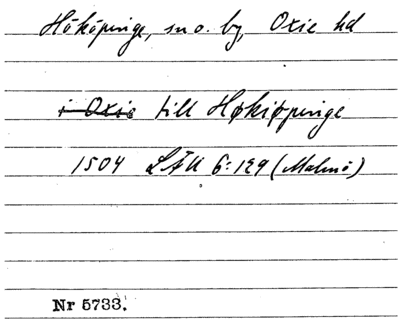 Hököpinge, sn o. by, Oxie hd
i Oxie till Høkiøpinge
1504 LÄU 6:129 (Malmö)
Nr 5733.